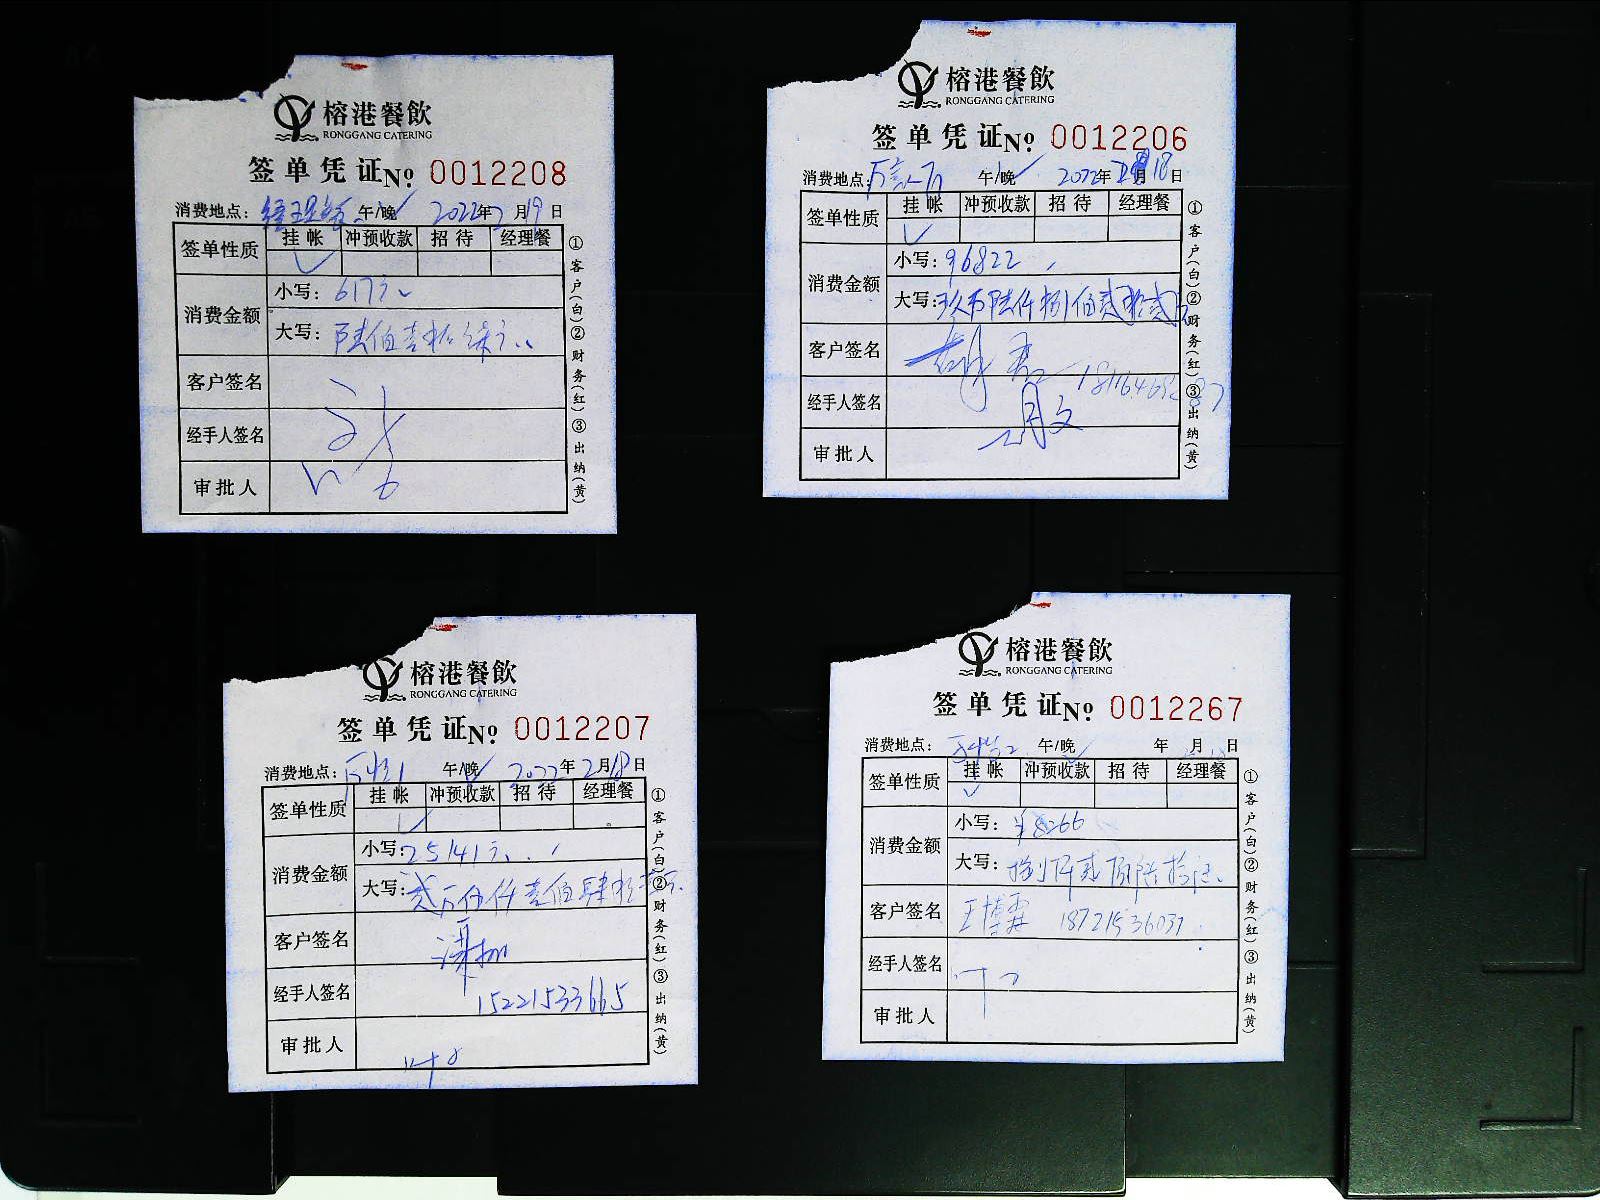 榕港餐飲
RONGGANG CATERING
签单凭证 No. 0012208
消费地点: 经理餐 午/晚 2022年2月19日
签单性质 挂帐 冲预收款 招待 经理餐
消费金额 小写: 617元
大写: 陆伯壹拾柒元
客户签名
经手人签名
审批人
①客户(白)②财务(红)③出纳(黄)
榕港餐飲
RONGGANG CATERING
签单凭证 No. 0012206
消费地点: 午/晚 2022年 月18日
签单性质 挂帐 冲预收款 招待 经理餐
消费金额 小写: 96822
大写: 玖万陆仟捌佰贰拾贰
客户签名
经手人签名
审批人
①客户(白)②财务(红)③出纳(黄)
榕港餐飲
RONGGANG CATERING
签单凭证 No. 0012207
消费地点: 午/晚 2022年2月18日
签单性质 挂帐 冲预收款 招待 经理餐
消费金额 小写: 25141元
大写: 贰万伍仟壹佰肆拾壹元
客户签名
经手人签名 15221533665
审批人
①客户(白)②财务(红)③出纳(黄)
榕港餐飲
RONGGANG CATERING
签单凭证 No. 0012267
消费地点: 午/晚 年 月 日
签单性质 挂帐 冲预收款 招待 经理餐
消费金额 小写: ¥8266
大写: 捌仟贰佰陆拾陆
客户签名 王博霖 18721536037
经手人签名
审批人
①客户(白)②财务(红)③出纳(黄)